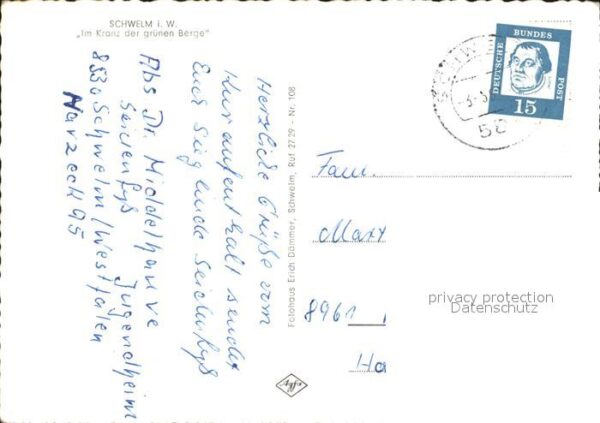 SCHWELM i. W.
„Im Kranz der grünen Berge"
Herzliche Grüße vom
Kuraufenthalt sendet
Euer Sieglinde Seidenfuß
Abs Dr. Middelhauve
Jugendheim
Seidenfuß
8530 Schwelm/Westfalen
Harzeck 95
Fotohaus Erich Dämmer, Schwelm, Ruf 27 29 - Nr. 108
DEUTSCHE BUNDES POST
15
58
Fam.
Maxx
8961
Ha
privacy protection
Datenschutz
Agfa